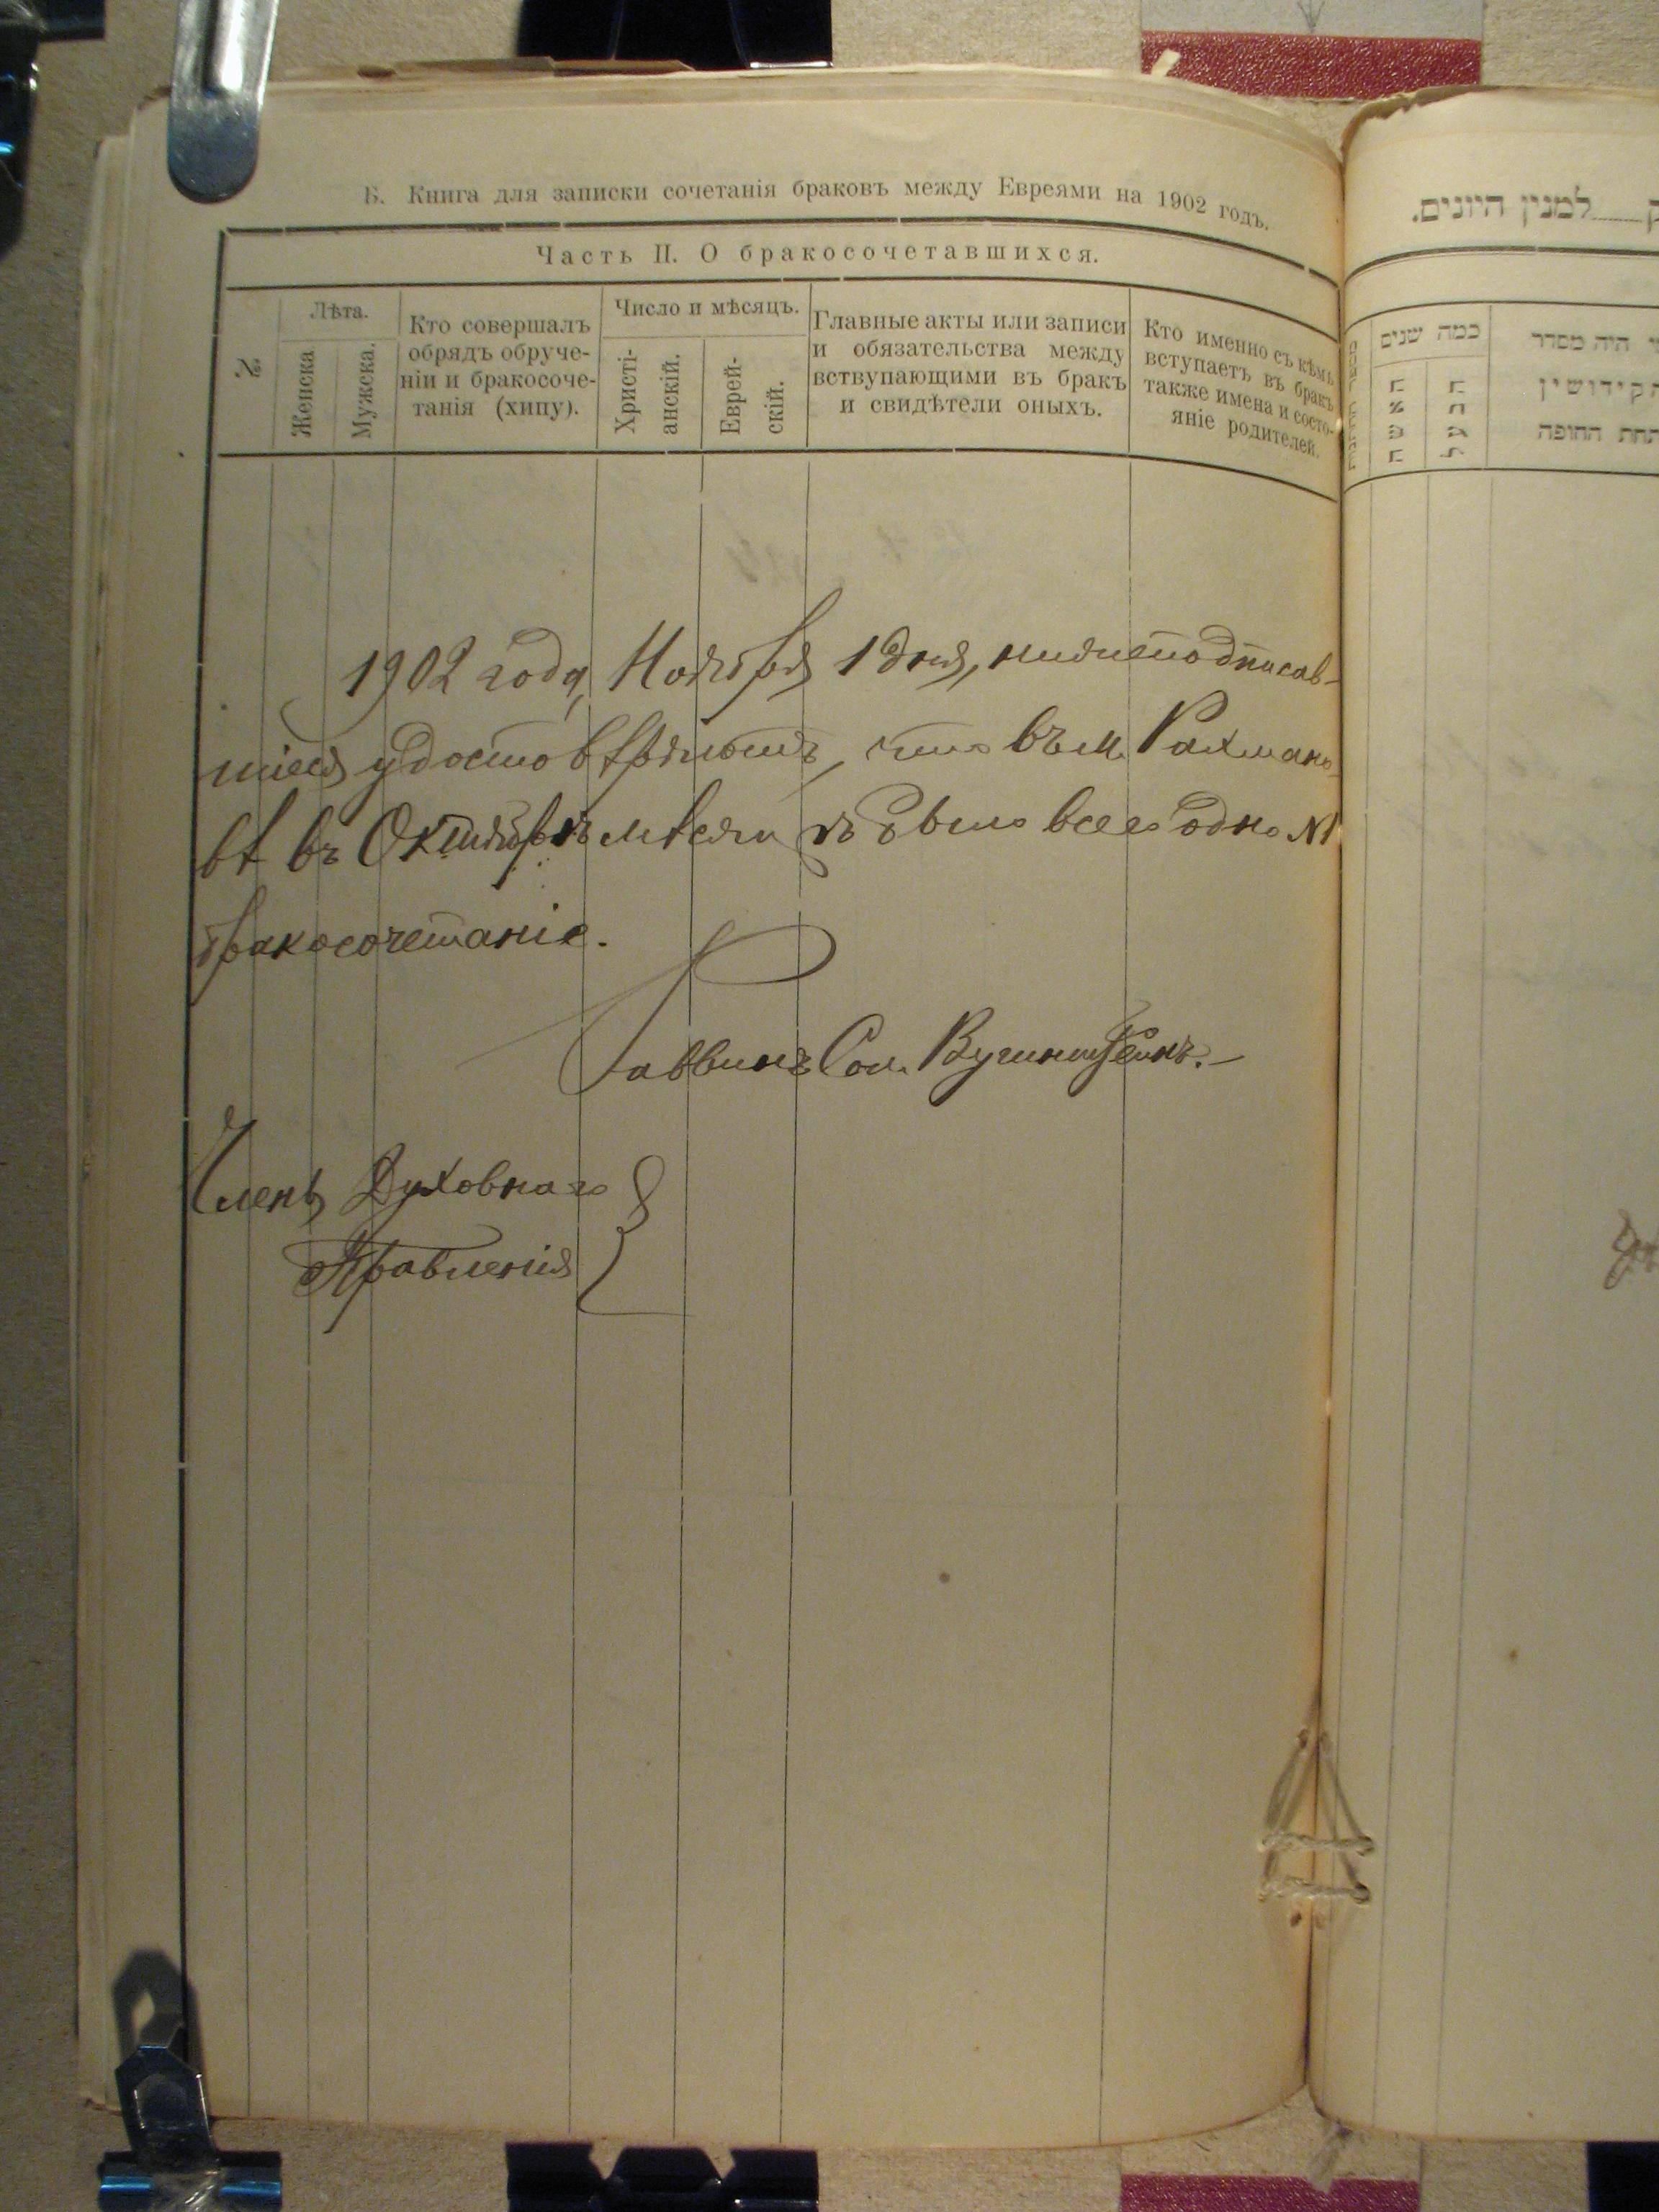 Б. Книга для записки сочетанія браковъ между Евреями на 1902 годъ.
Часть II. О бракосочетавшихся.
№
Лѣта.
Женска
Мужска.
Кто совершалъ
обрядъ обруче-
ніи и бракосоче-
танія (хипу).
Число и мѣсяцъ.
Христі-
анскій.
Еврей-
скій.
Главные акты или записи
и обязательства между
вствупающими въ бракъ
и свидѣтели оныхъ.
Кто именно съ кѣмъ
вступаетъ въ бракъ
также имена и состо-
яніе родителей.
1902 года, Ноября 1 дня, нижеподписав-
шіеся удостовѣряютъ, что въ м. Рахмано-
вѣ въ Октябрѣ мѣсяцѣ было всего одно №1
бракосочетаніе.
Раввинъ Сол.
Члены Духовнаго
Правленія
למנין היונים.
כמה שנים
היה מסדר
הקידושין
תחת החופה